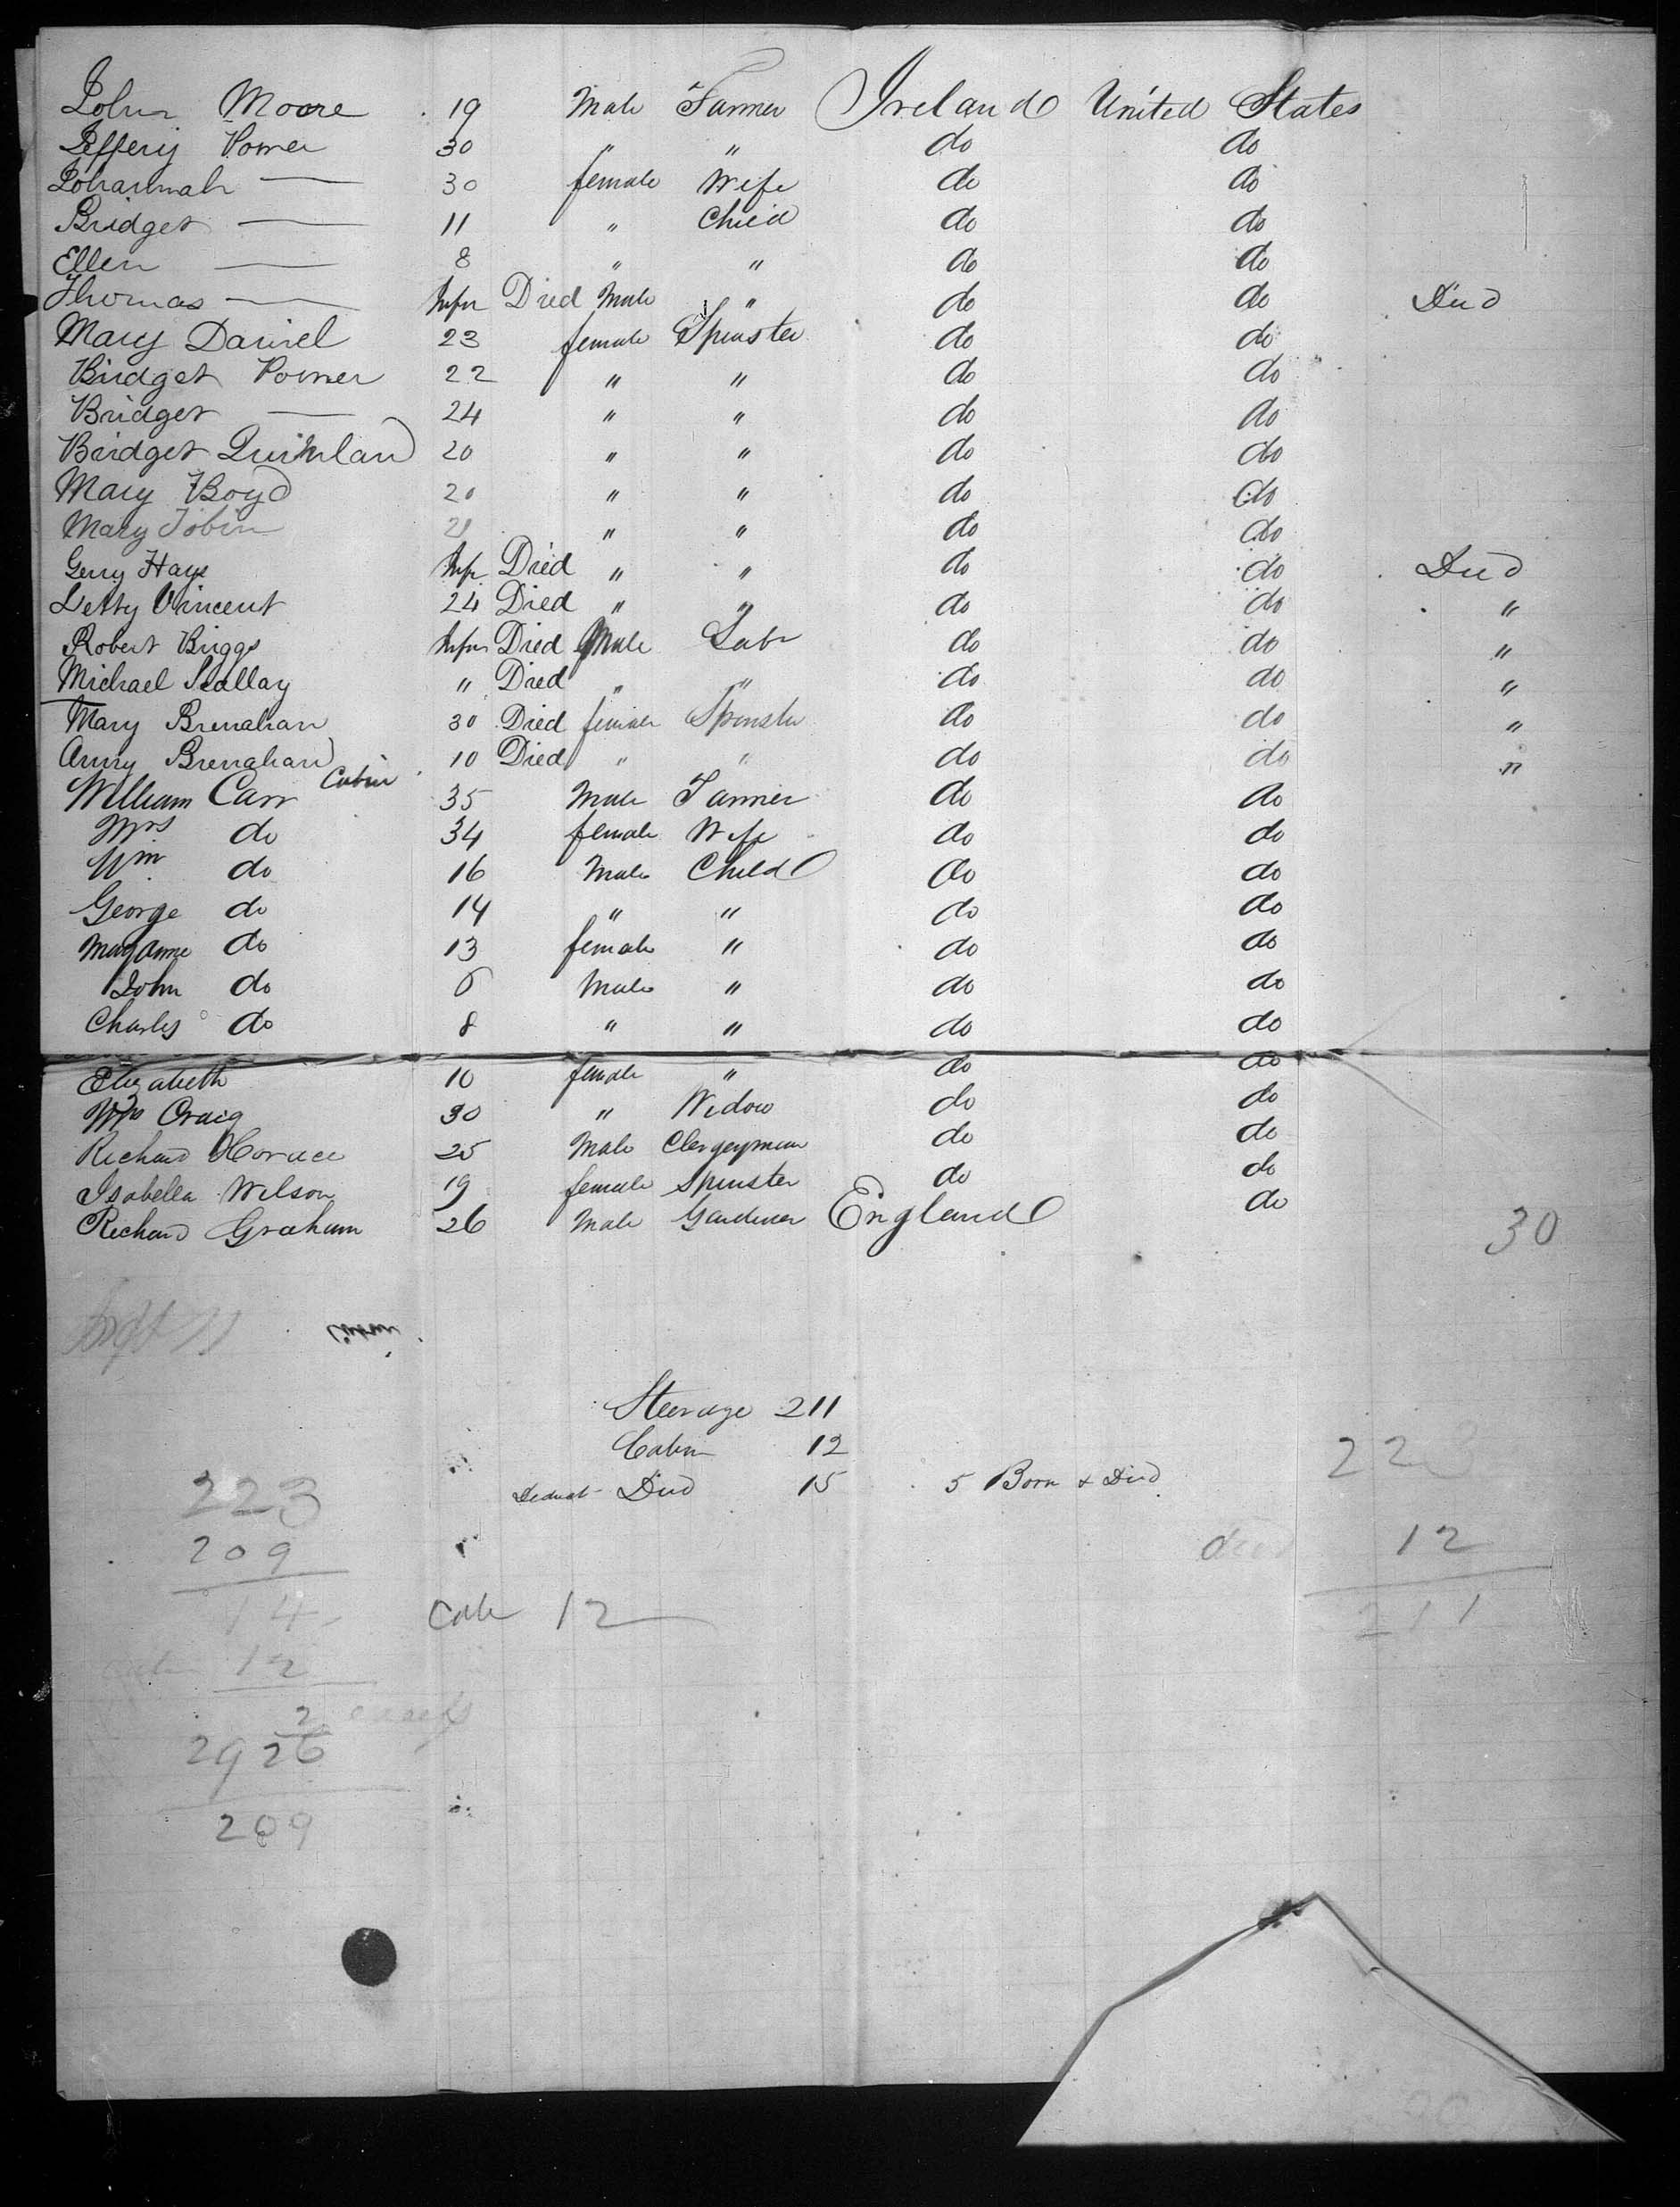 John Moore 19 Male Farmer Ireland United States
Jeffery Power 30 " " do do
Johannah — 30 female Wife do do
Bridget — 11 " Child do do
Ellen — 8 " " do do
Thomas — Infn Died Male " do do Died
Mary Daniel 23 female Spinster do do
Bridget Power 22 " " do do
Bridget — 24 " " do do
Bridget Quinlan 20 " " do do
Mary Boyd 20 " " do do
Mary Tobin " " do do
Hays Inf Died " " do do Died
Letty Vincent 24 Died " " do do "
Robert Briggs Infn Died Male Labr do do "
Michael Died " " do do "
Mary Brenahan 30 Died female Spinster do do "
Anny Brenahan 10 Died " " do do "
William Carr Cabin 35 Male Farmer do do
Mrs do 34 female Wife do do
Wm do 16 Male Child do do
George do 14 " " do do
Maryanne do 13 female " do do
John do 6 Male " do do
Charles do 8 " " do do
Elizabeth 10 female " do do
Mrs Craig 30 " Widow do do
Richard Horace 25 Male Clergeyman do do
Isabella Wilson 19 female Spinster do do
Richard Graham 26 Male Gardener England do 30
Steerage 211
Cabin 12
Deduct Died 15 5 Born & Died
223
209
14
12
2
2926
209
Cab 12
223
died 12
211